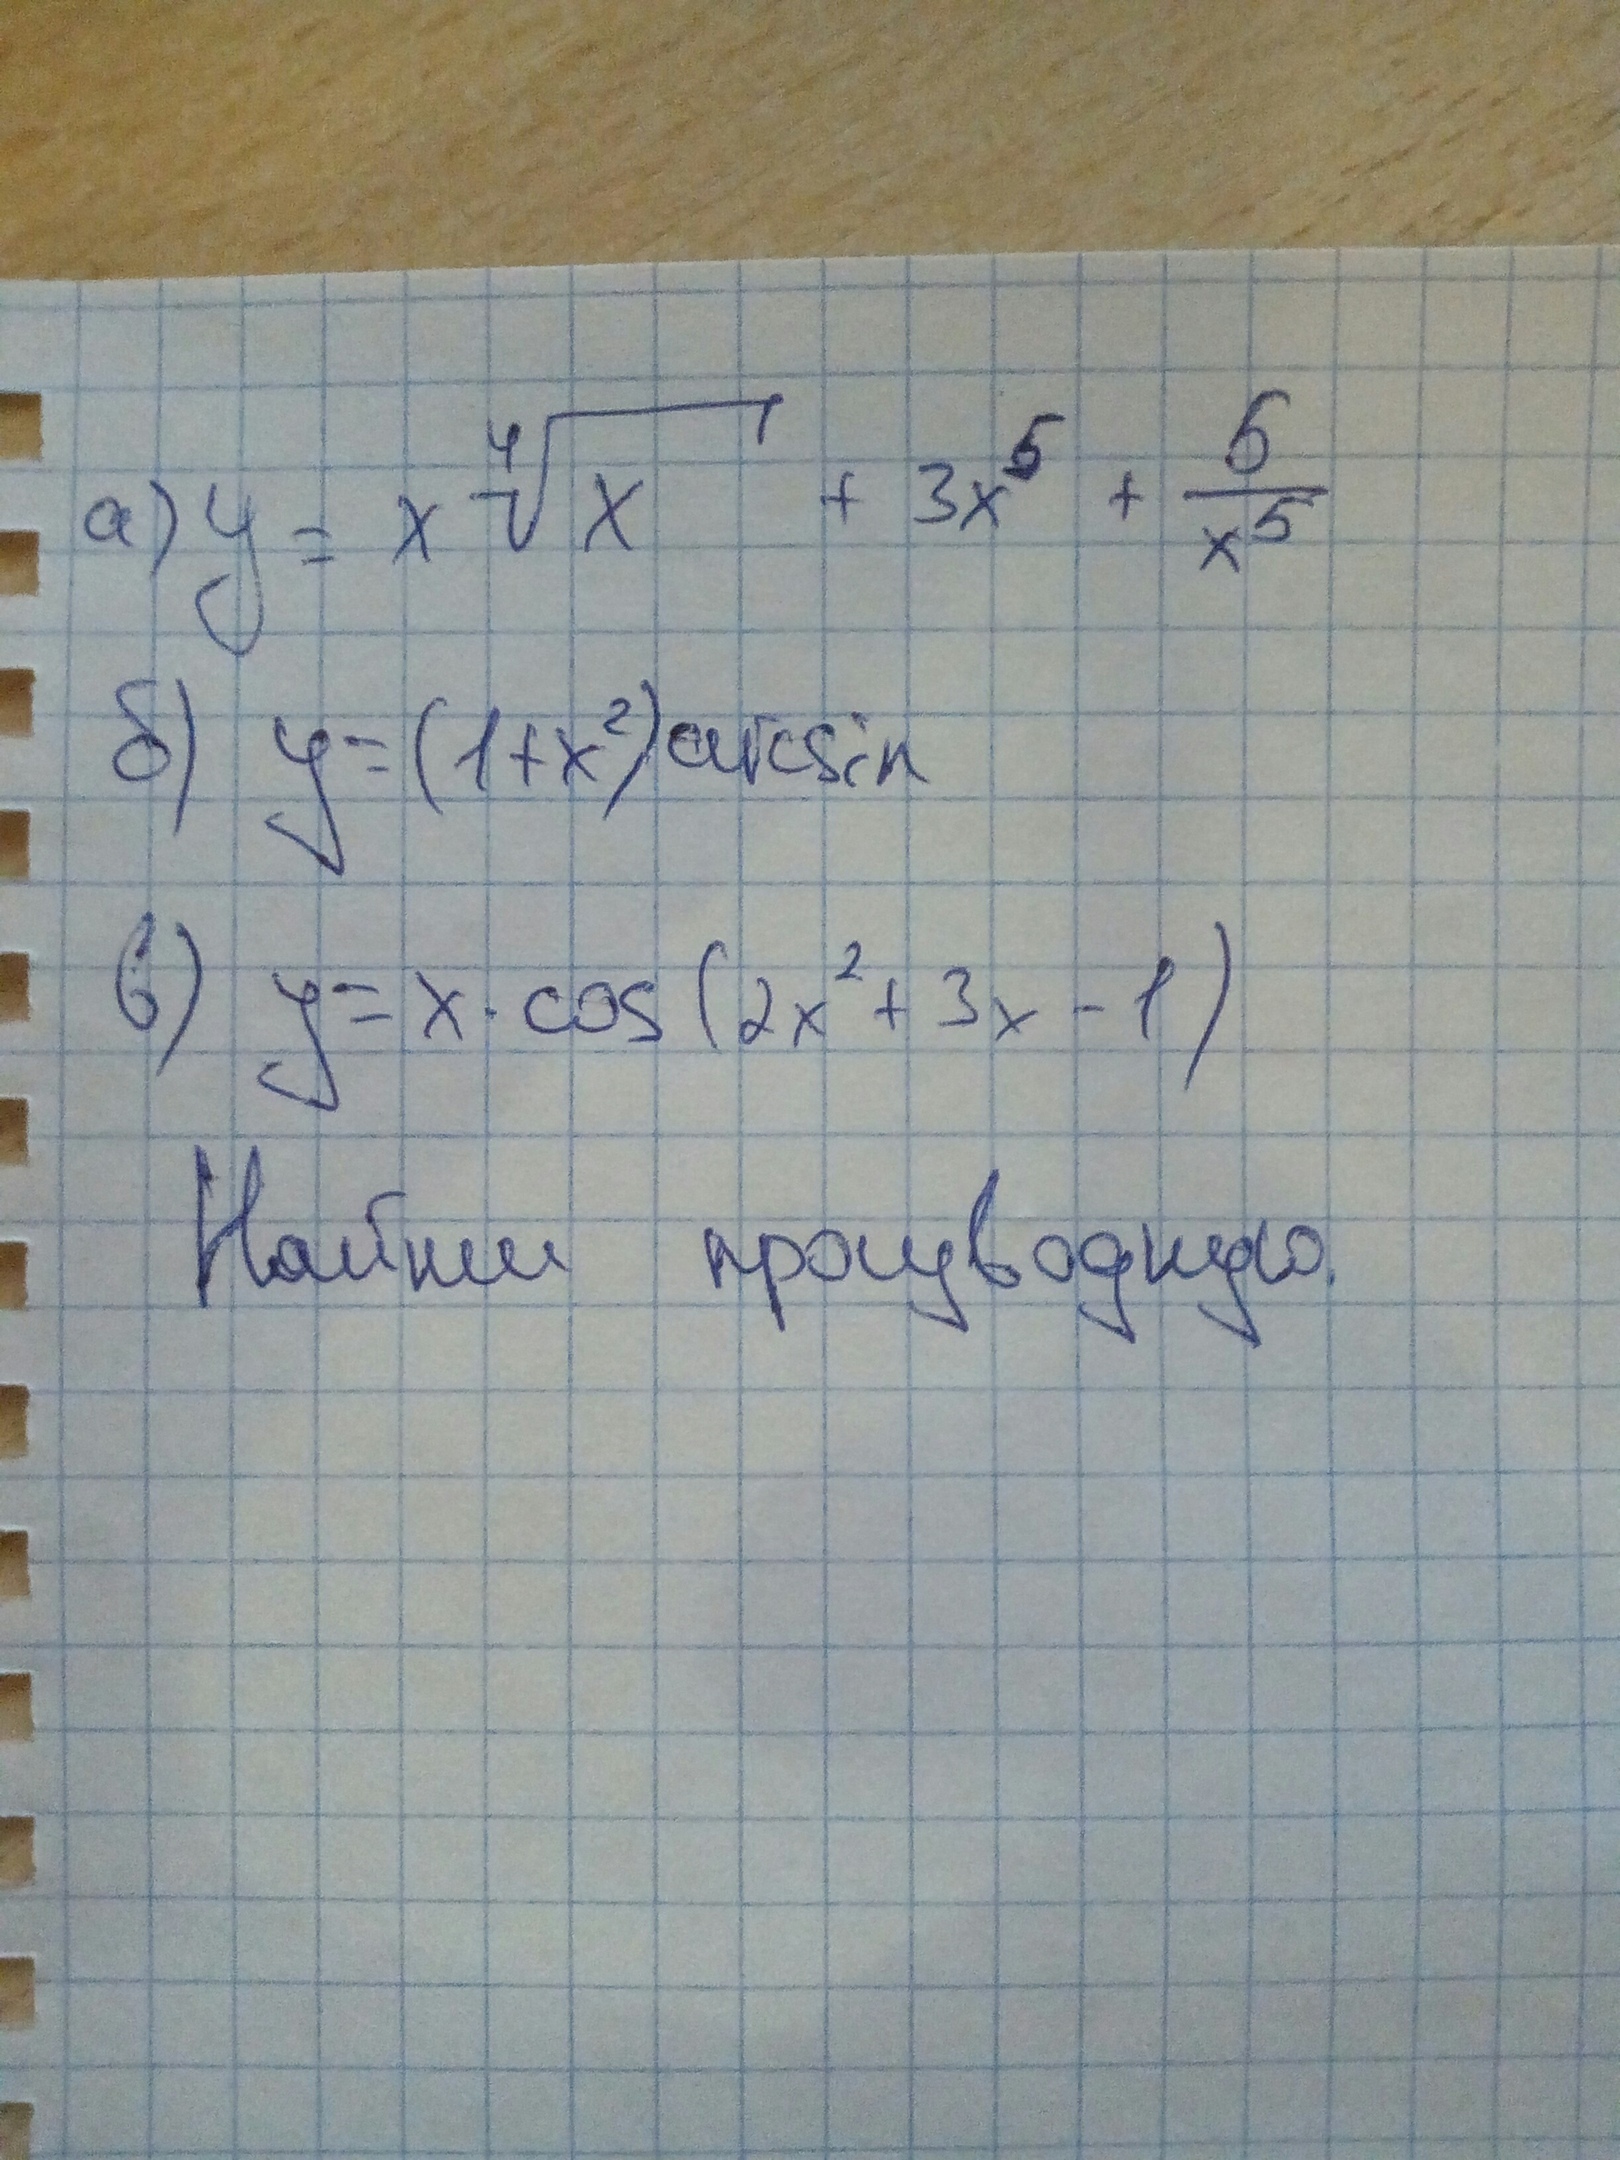 а) y = x ∜x + 3x⁵ + 6/x⁵
б) y = (1+x²) arcsin
в) y = x · cos (2x² + 3x - 1)
Найти производную.